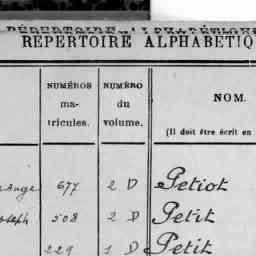 RÉPERTOIRE ALPHABÉTIQ
NUMÉROS ma- tricules. NUMÉRO du volume. NOM.
(Il doit être écrit en
ange 677 2 D Petiot
oseph 508 2 D Petit
229 1 D Petit